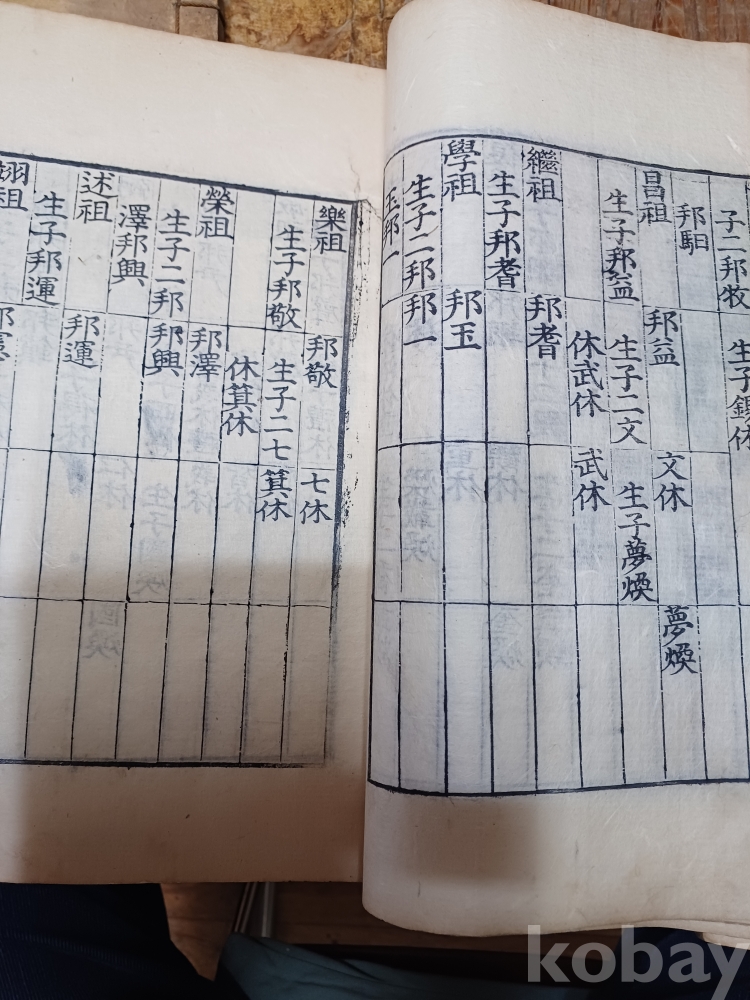 子二邦牧
生子錫休
邦馹
昌祖
邦益
文休
夢煥
生子邦益
生子二文
生子夢煥
休武休
武休
繼祖
邦耆
生子邦耆
學祖
邦玉
生子二邦
邦一
玉邦一
樂祖
邦敬
七休
生子邦敬
生子二七
箕休
休箕休
榮祖
邦澤
生子二邦
邦興
澤邦興
述祖
邦運
生子邦運
翊祖
邦憲
kobay